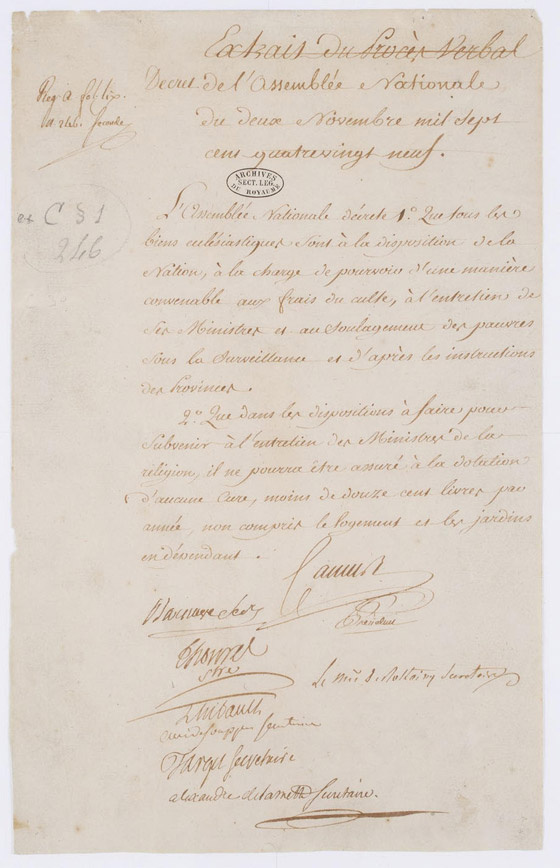 Extrait du Procès Verbal
Decret de l'Assemblée Nationale
du deux Novembre mil sept
cens quatrevingt neuf.
ARCHIVES
SECT. LEG.
DU ROYAUME
ex C § 1
246
L'Assemblée Nationale décrete 1.º Que tous les
biens eclésiastiques sont à la disposition de la
Nation, à la charge de pourvoir d'une manière
convenable aux frais du culte, à l'entretien de
ses Ministres et au soulagement des pauvres
sous la surveillance et d'après les instructions
des Provinces.
2.º Que dans les dispositions à faire pour
subvenir à l'entretien des Ministres de la
réligion, il ne pourra être assuré à la dotation
d'aucune Cure, moins de douze cent livres par
année, non compris le logement et les jardins
en dépendant.
Camus
Président
Barnave
Thouret
Sre
Thibault
curé de souppes secretaire
Target secretaire
alexandre de lameth secretaire.